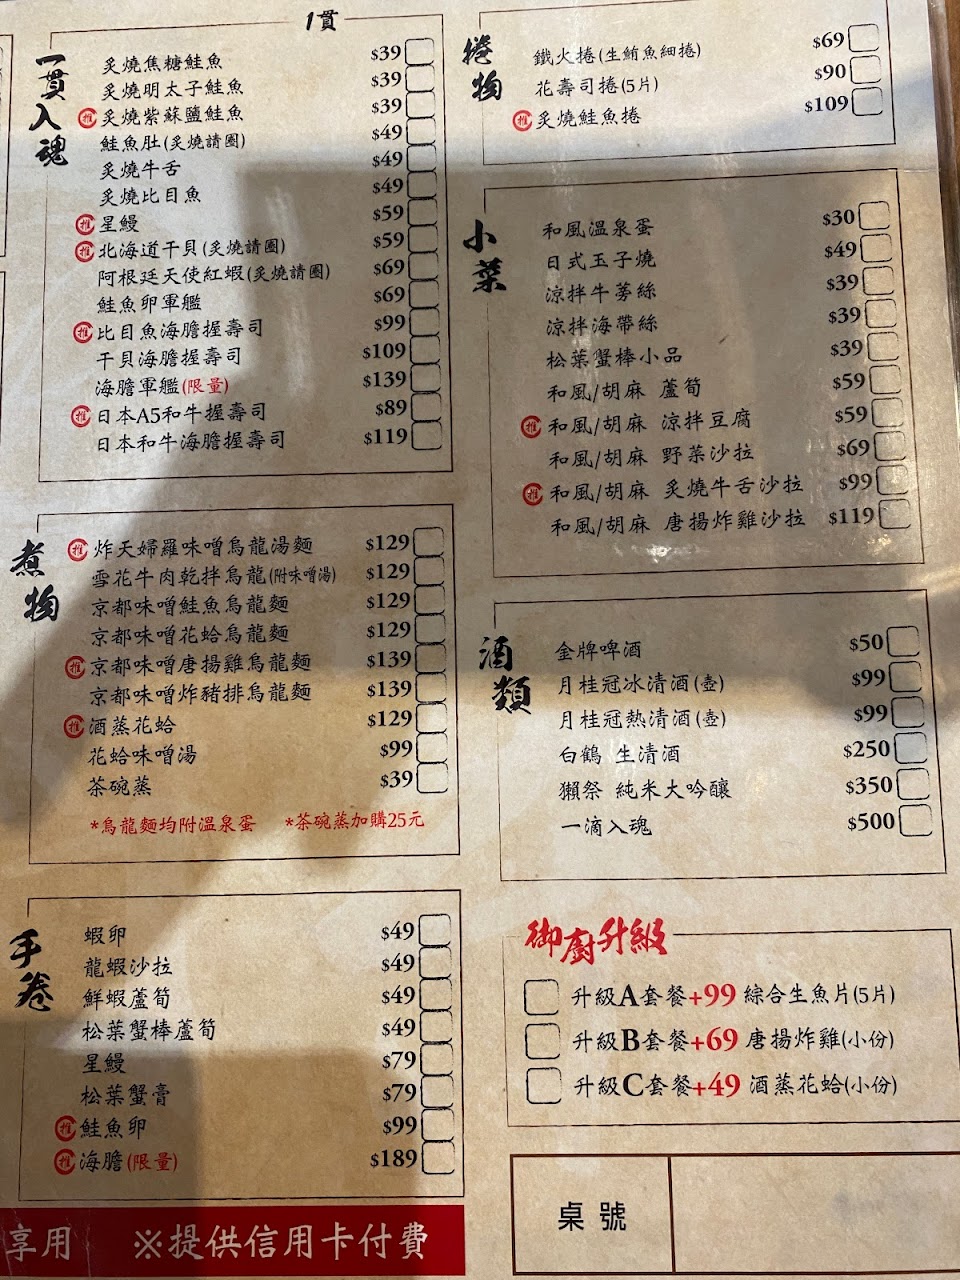 一貫入魂
1貫
炙燒焦糖鮭魚 $39
炙燒明太子鮭魚 $39
推 炙燒紫蘇鹽鮭魚 $39
鮭魚肚(炙燒請圈) $49
炙燒牛舌 $49
炙燒比目魚 $49
推 星鰻 $59
推 北海道干貝(炙燒請圈) $59
阿根廷天使紅蝦(炙燒請圈) $69
鮭魚卵軍艦 $69
推 比目魚海膽握壽司 $99
干貝海膽握壽司 $109
海膽軍艦(限量) $139
推 日本A5和牛握壽司 $89
日本和牛海膽握壽司 $119
煮物
推 炸天婦羅味噌烏龍湯麵 $129
雪花牛肉乾拌烏龍(附味噌湯) $129
京都味噌鮭魚烏龍麵 $129
京都味噌花蛤烏龍麵 $129
推 京都味噌唐揚雞烏龍麵 $139
京都味噌炸豬排烏龍麵 $139
推 酒蒸花蛤 $129
花蛤味噌湯 $99
茶碗蒸 $39
*烏龍麵均附溫泉蛋 *茶碗蒸加購25元
手卷
蝦卵 $49
龍蝦沙拉 $49
鮮蝦蘆筍 $49
松葉蟹棒蘆筍 $49
星鰻 $79
松葉蟹膏 $79
推 鮭魚卵 $99
推 海膽(限量) $189
享用 ※提供信用卡付費
捲物
鐵火捲(生鮪魚細捲) $69
花壽司捲(5片) $90
推 炙燒鮭魚捲 $109
小菜
和風溫泉蛋 $30
日式玉子燒 $49
涼拌牛蒡絲 $39
涼拌海帶絲 $39
松葉蟹棒小品 $39
和風/胡麻 蘆筍 $59
推 和風/胡麻 涼拌豆腐 $59
和風/胡麻 野菜沙拉 $69
推 和風/胡麻 炙燒牛舌沙拉 $99
和風/胡麻 唐揚炸雞沙拉 $119
酒類
金牌啤酒 $50
月桂冠冰清酒(壺) $99
月桂冠熱清酒(壺) $99
白鶴 生清酒 $250
獺祭 純米大吟釀 $350
一滴入魂 $500
御廚升級
升級A套餐+99 綜合生魚片(5片)
升級B套餐+69 唐揚炸雞(小份)
升級C套餐+49 酒蒸花蛤(小份)
桌號